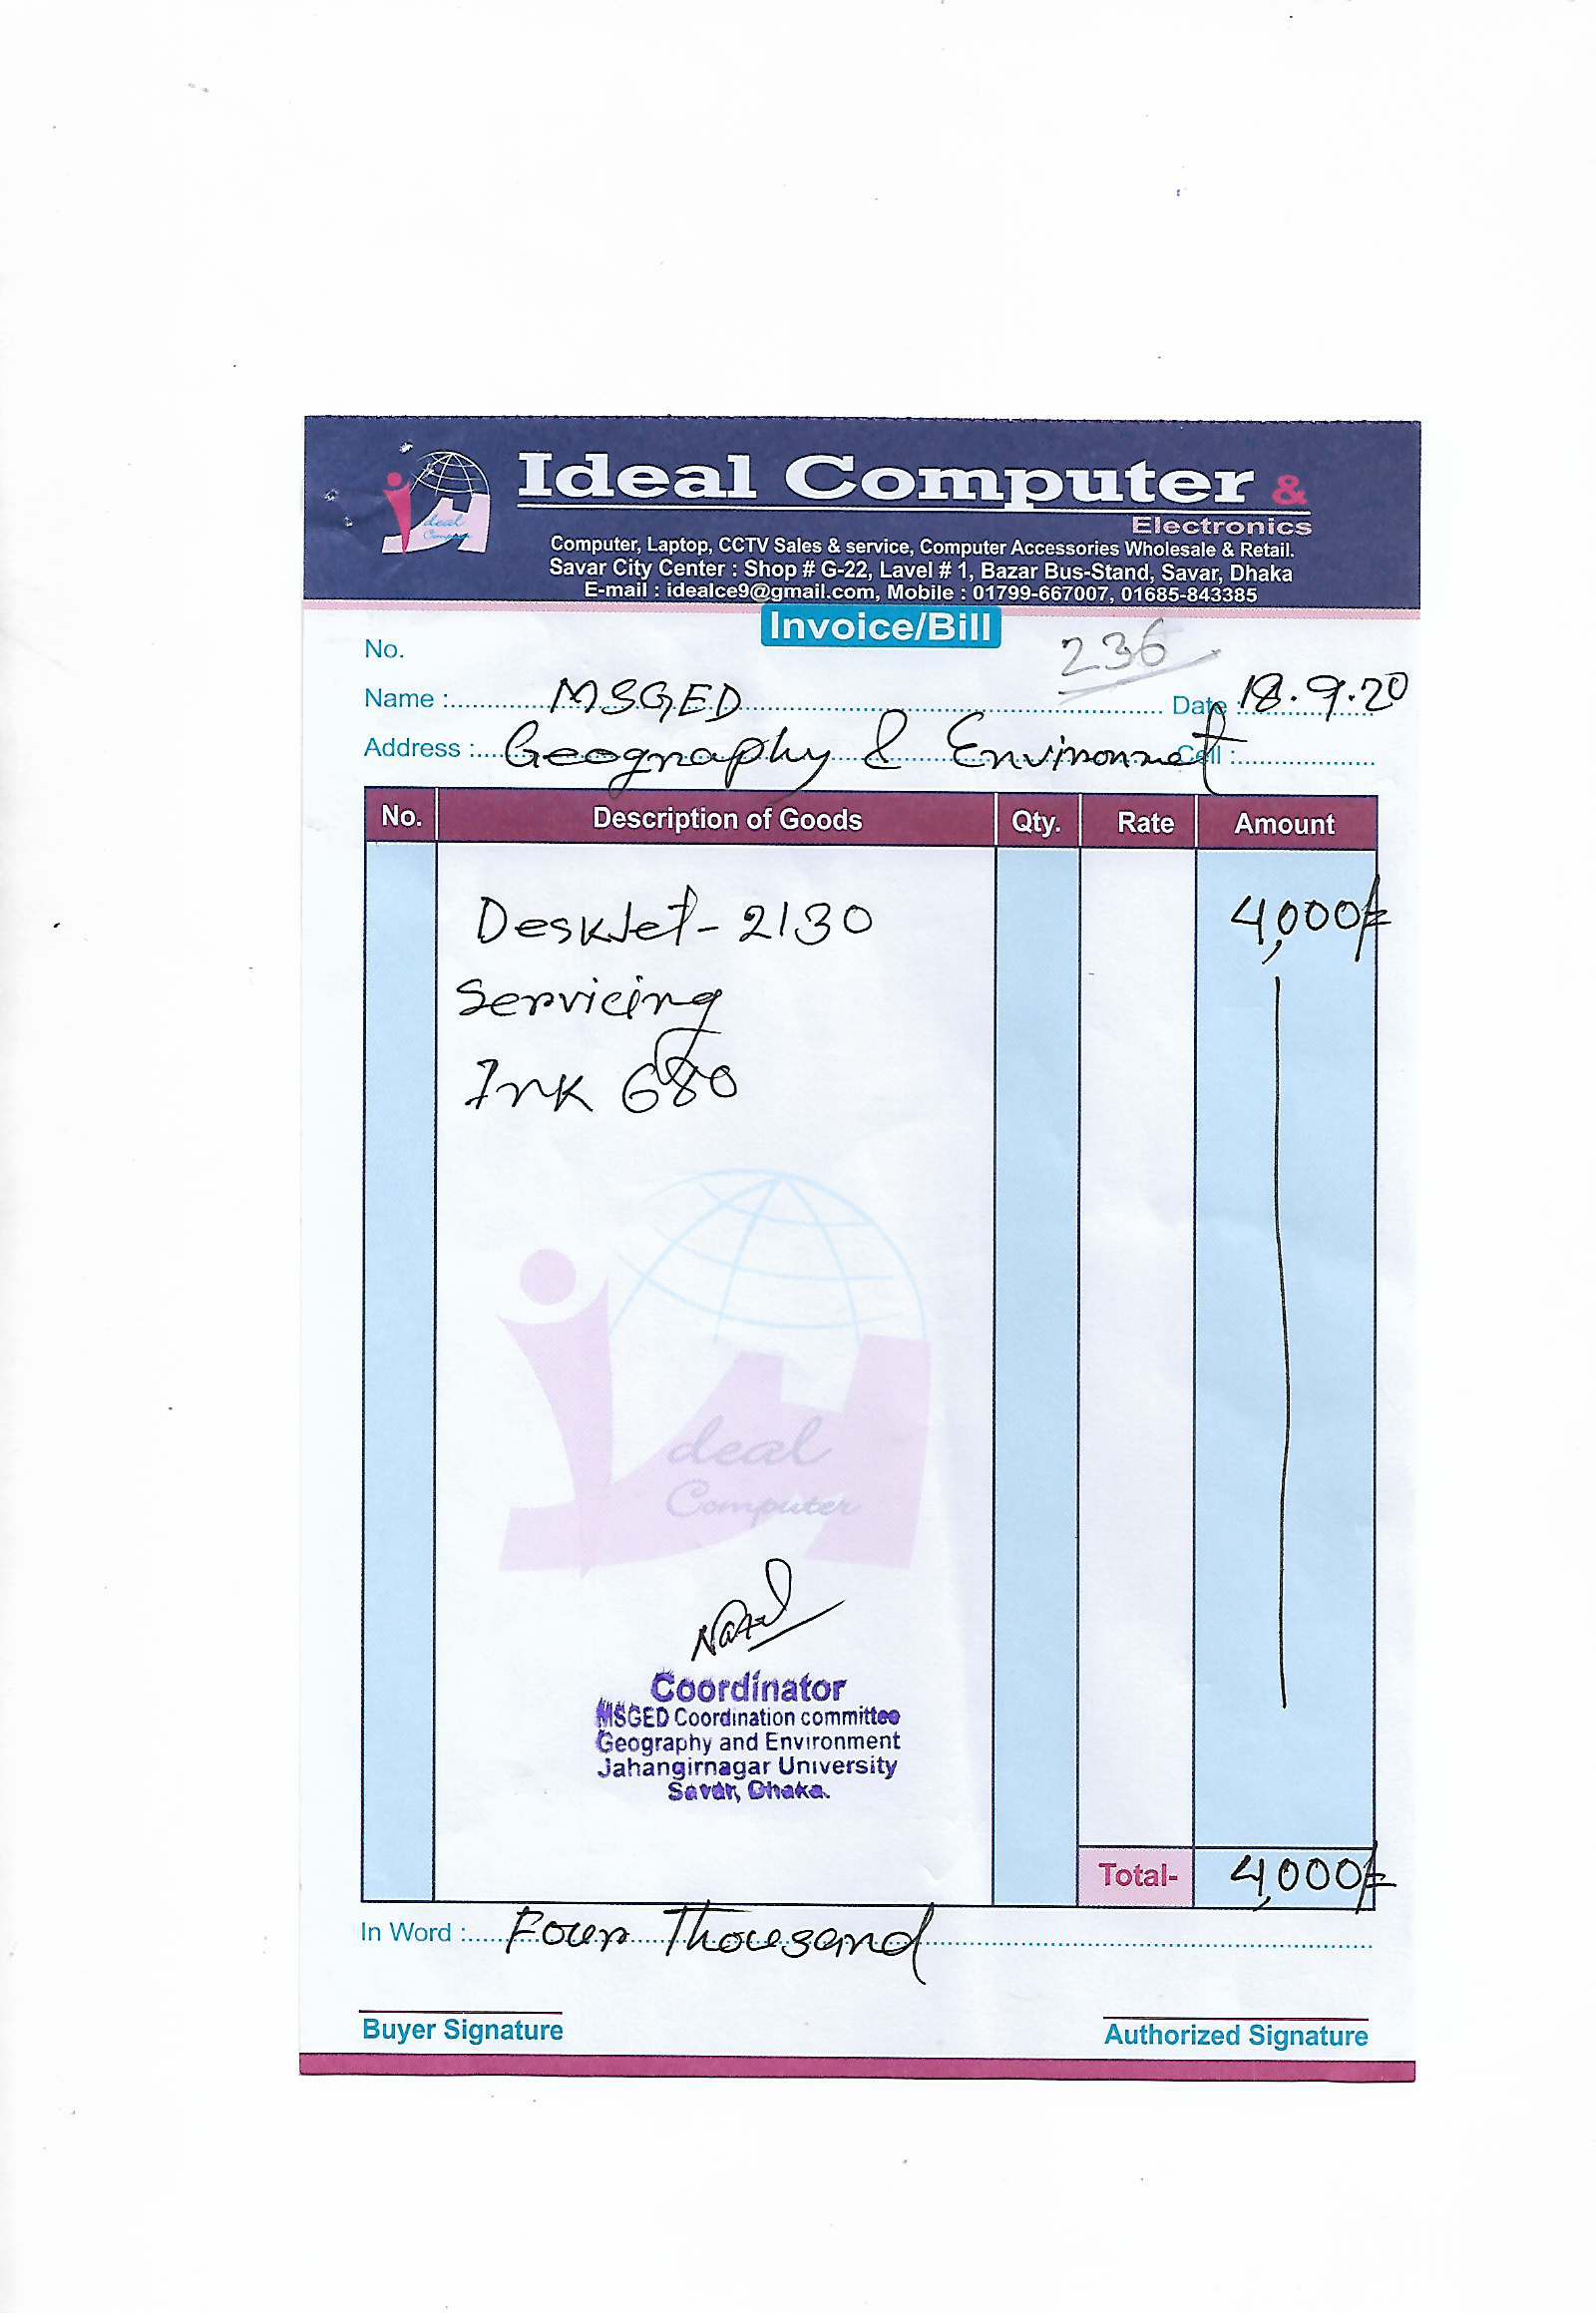 Ideal Computer &
Electronics
Computer, Laptop, CCTV Sales & service, Computer Accessories Wholesale & Retail.
Savar City Center : Shop # G-22, Lavel # 1, Bazar Bus-Stand, Savar, Dhaka
E-mail : idealce9@gmail.com, Mobile : 01799-667007, 01685-843385
deal
Computer
Invoice/Bill
No. 236
Name : MSGED Date : 18.9.20
Address : Geography & Environmet Cell :
No. Description of Goods Qty. Rate Amount
DeskJet-2130 4,000/=
Servicing
Ink 680
deal
Computer
Coordinator
MSGED Coordination committee
Geography and Environment
Jahangirnagar University
Savar, Dhaka.
Total- 4,000/=
In Word : Four Thousand
Buyer Signature Authorized Signature